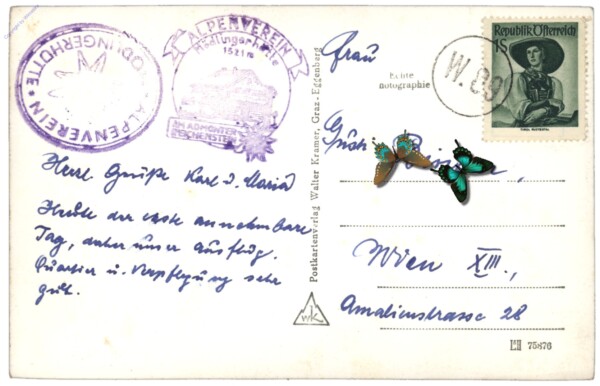 ALPENVEREIN
MÖDLINGERHÜTTE
ALPENVEREIN
Mödlingerhütte
1521m
IM ADMONTER
REICHENSTEIN
Herzl. Grüße Karl u. Maria
Heute der erste annehmbare
Tag, daher unser Ausflug.
Quartier u. Verpflegung sehr
gut.
Postkartenverlag Walter Kramer, Graz-Eggenberg
wk
Frau
Echte
Photographie
W. 89
Republik Österreich
1S
Wien XIII.,
Amalienstrasse 28
75876